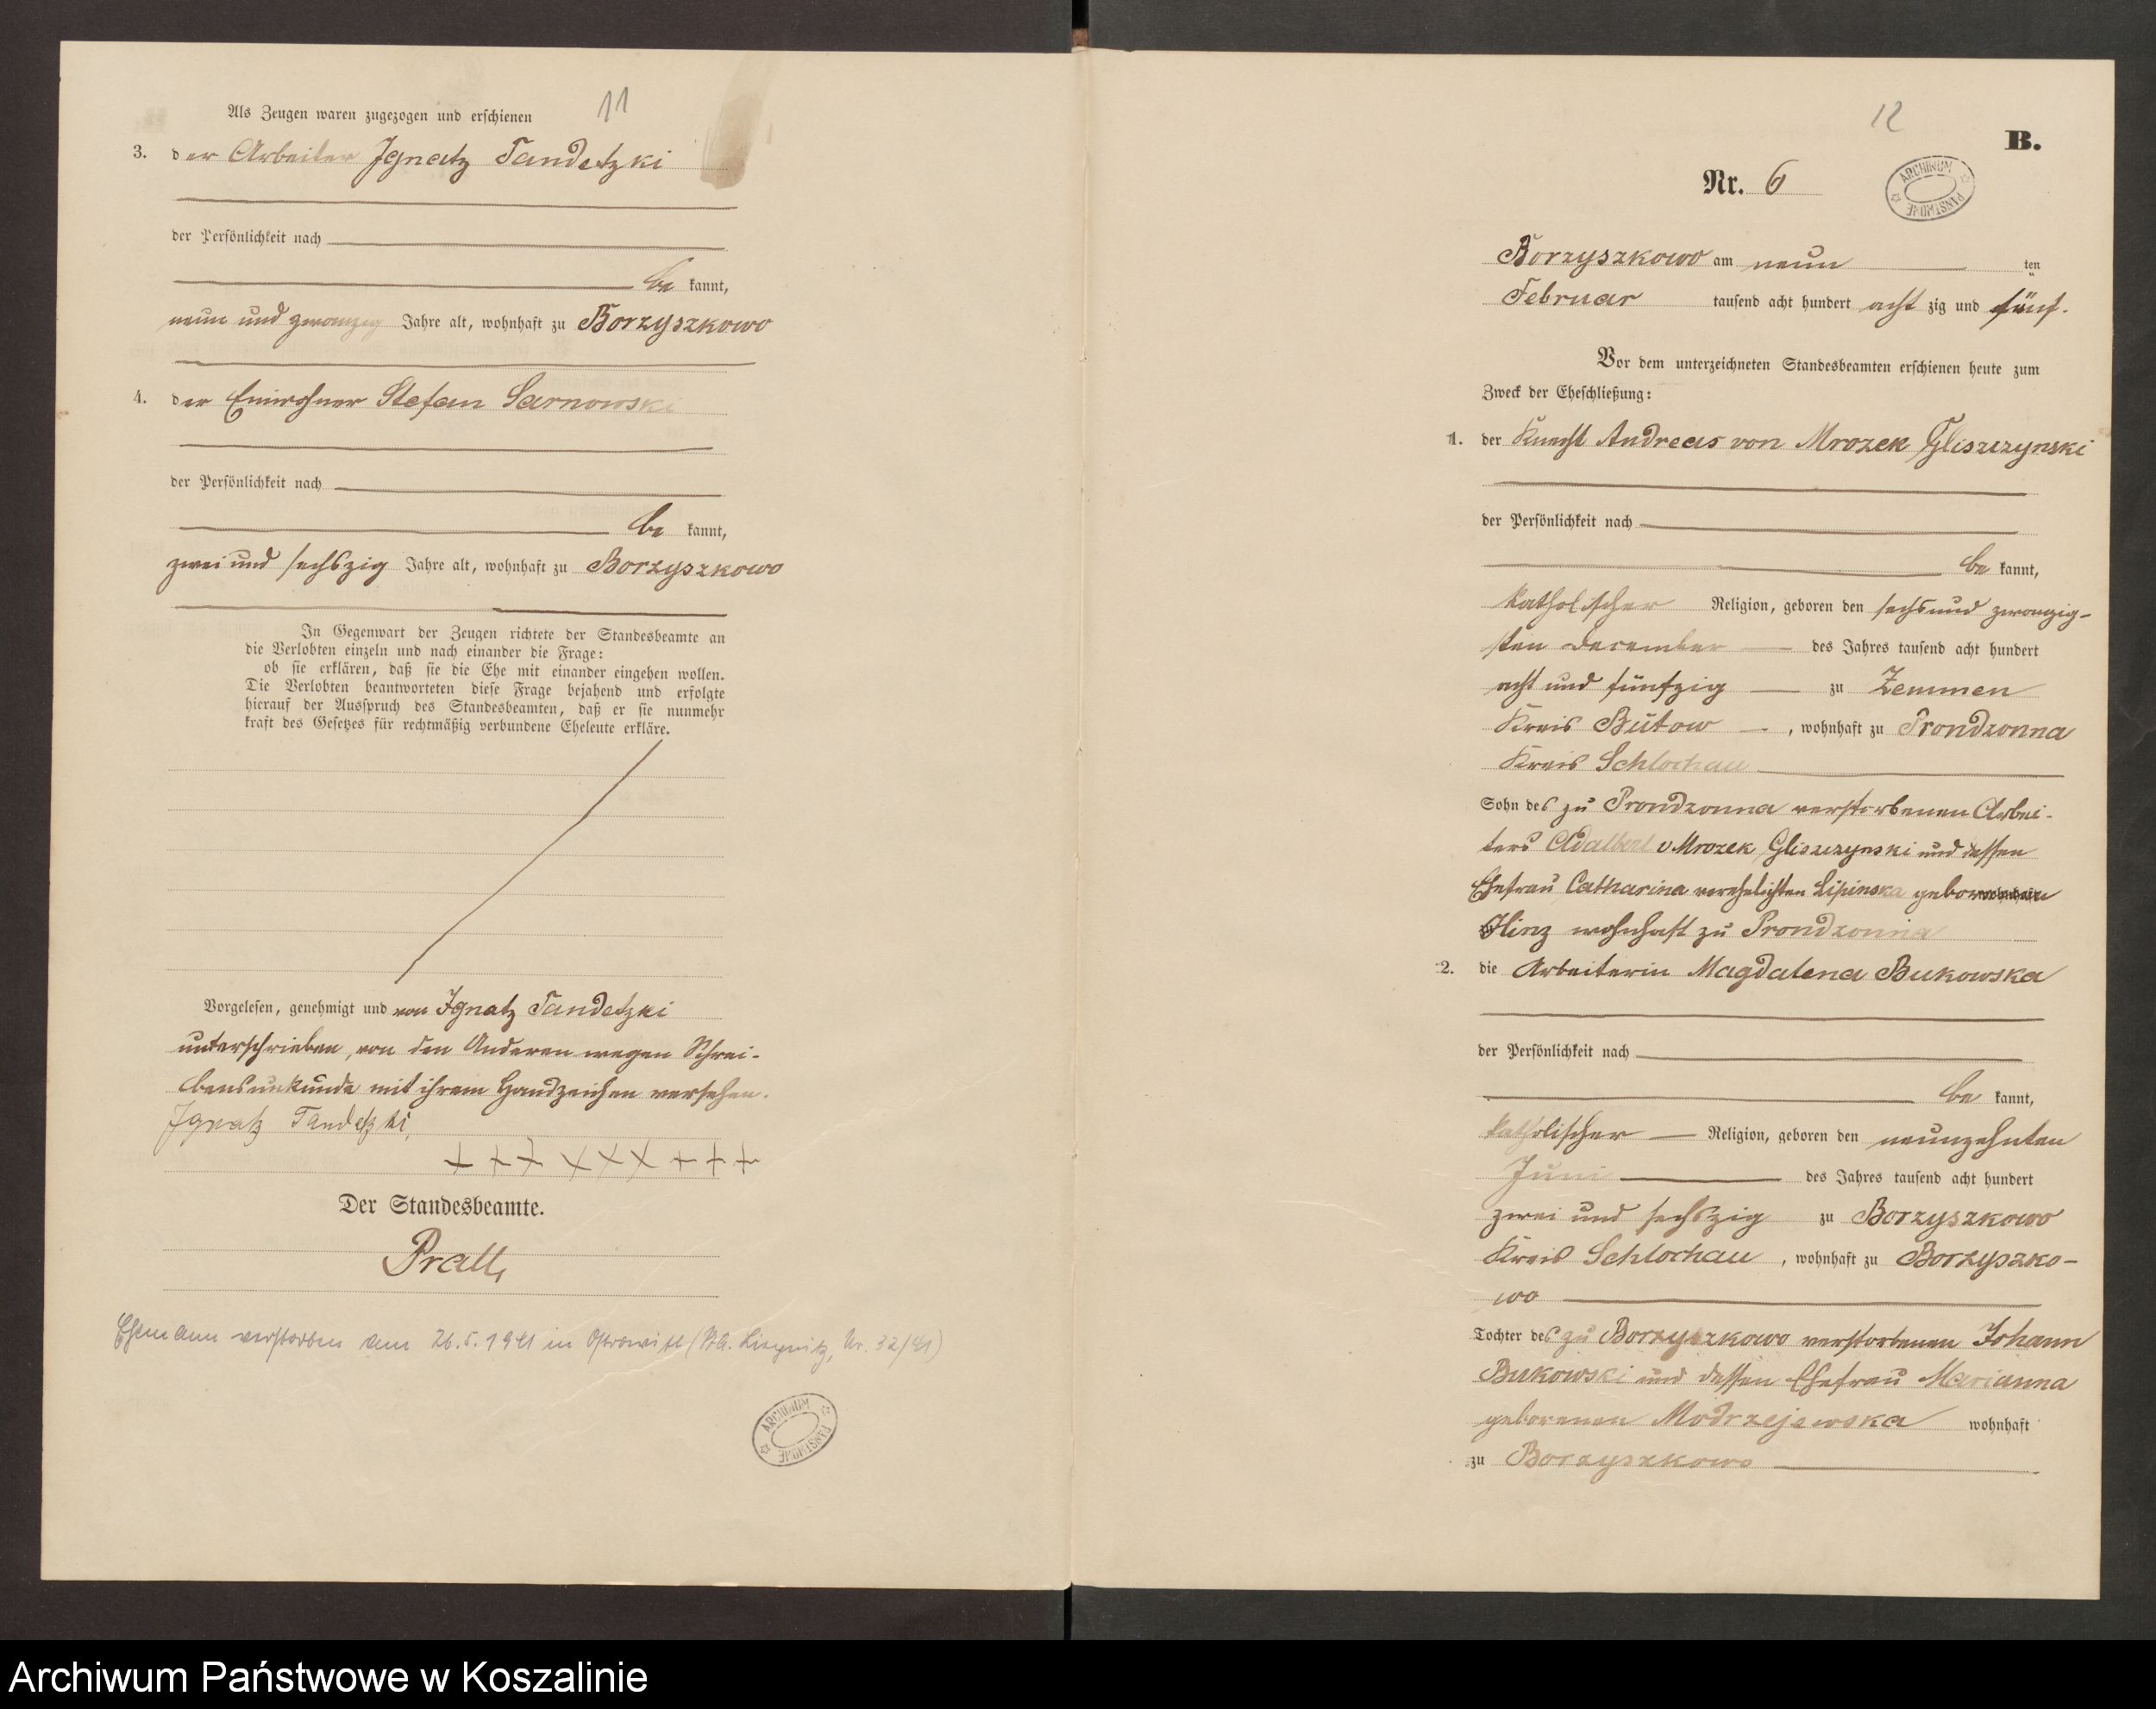 11
Als Zeugen waren zugezogen und erschienen
3. der Arbeiter Ignatz Tandetzki
der Persönlichkeit nach
be kannt,
neun und zwanzig Jahre alt, wohnhaft zu Borzyszkowo
4. der Einwohner Stefan Sarnowski
der Persönlichkeit nach
be kannt,
zwei und sechszig Jahre alt, wohnhaft zu Borzyszkowo
In Gegenwart der Zeugen richtete der Standesbeamte an
die Verlobten einzeln und nach einander die Frage:
ob sie erklären, daß sie die Ehe mit einander eingehen wollen.
Die Verlobten beantworteten diese Frage bejahend und erfolgte
hierauf der Ausspruch des Standesbeamten, daß er sie nunmehr
kraft des Gesetzes für rechtmäßig verbundene Eheleute erkläre.
Vorgelesen, genehmigt und von Ignatz Tandetzki
unterschrieben, von den Anderen wegen Schrei-
bensunkunde mit ihrem Handzeichen versehen.
Ignatz Tandetzki,
+ + + x x x + + +
Der Standesbeamte.
Ehemann verstorben am 26.5.1941 in (StA. Nr. 32/41)
ARCHIWUM PAŃSTWOWE
12
B.
Nr. 6
ARCHIWUM PAŃSTWOWE
Borzyszkowo am neun ten
Februar tausend acht hundert acht zig und fünf.
Vor dem unterzeichneten Standesbeamten erschienen heute zum
Zweck der Eheschließung:
1. der Knecht Andreas von Mrozek Gliszczynski
der Persönlichkeit nach
be kannt,
katholischer Religion, geboren den sechsundzwanzig-
sten December des Jahres tausend acht hundert
acht und fünfzig zu Zemmen
Kreis Bütow, wohnhaft zu Prondzonna
Kreis Schlochau
Sohn des zu Prondzonna verstorbenen Arbei-
ters Adalbert v Mrozek Gliszczynski und dessen
Ehefrau Catharina verehelichten Lipinska geborenen
Hinz wohnhaft zu Prondzonna
2. die Arbeiterin Magdalena Bukowska
der Persönlichkeit nach
be kannt,
katholischer Religion, geboren den neunzehnten
Juni des Jahres tausend acht hundert
zwei und sechszig zu Borzyszkowo
Kreis Schlochau, wohnhaft zu Borzyszko-
wo
Tochter des zu Borzyszkowo verstorbenen Johann
Bukowski und dessen Ehefrau Marianna
geborenen Modrzejewska wohnhaft
zu Borzyszkowo
Archiwum Państwowe w Koszalinie